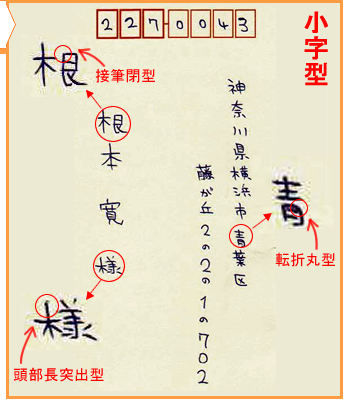 小字型
227-0043
神奈川県横浜市青葉区
藤が丘2の2の1の702
根本寛様
根
接筆閉型
青
転折丸型
様
頭部長突出型